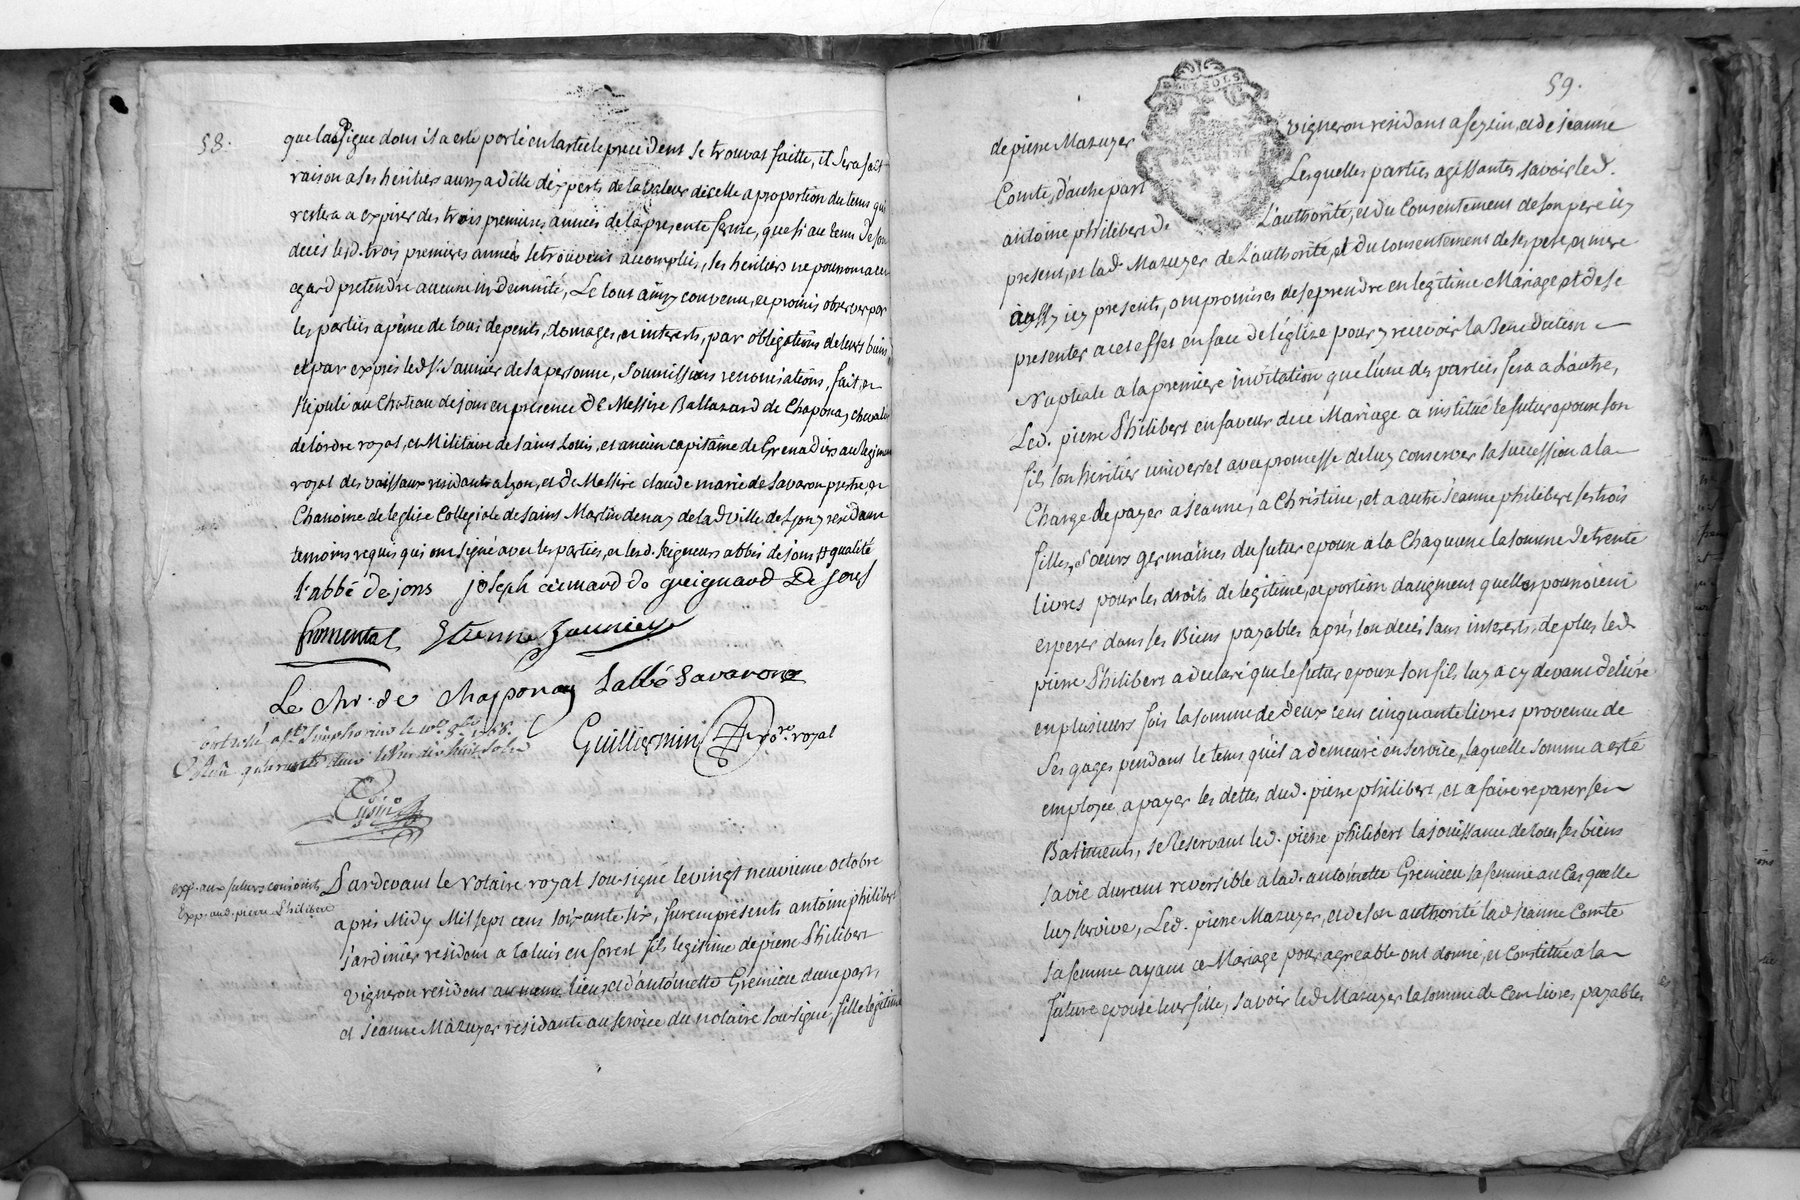 58.
que la Digue dont il a esté porté en l'article precedent se trouvat faitte, il sera fait
raison a ses heritiers aussy a dille d'experts de la valeur dicelle a proportion du tems qui
restera a expirer des trois premieres années de la presente ferme, que si au tems de son
decés lesd. trois premieres années se trouvent accomplies, ses heritiers ne pouront a cet
egard pretendre aucune indemnité, Le tout ainsy convenu, et promis observer par
les parties a peine de tous depents, domages, et interests, par obligations de leurs biens
et par exprés led. Sr. Saunier de sa personne, Soumissions renonciations, fait, et
stipulé au Chateau de jons en presence de Messire Baltazard de Chaponay chevalier
de l'ordre royal, et Militaire de saint Louis, et ancien capitaine de Grenadiers au regiment
royal des vaissaux residant a lyon, et de Messire claude marie de Savaron prestre, et
Chanoine de l'eglise Collegiale de saint Martin denay de lad. Ville de Lyon y residant
temoins requis qui ont signé avec les parties, et lesd. seigneurs abbés de jons # qualité
l'abbé de jons joseph aimard de greignaud De jons
fromental Etienne Saunier
Le Chr. de Chapponay l'abbé Savaron
Guillermin Nore. royal
Controllé a St. Simphorien le 10e. 8bre 1766.
Reçu quarante deux livres dix huit sols
exp. aux futurs conjoints
Exp. aud. pierre Philibert
Pardevant le Notaire royal sousigné le vingt neuvieme octobre
aprés Midy Mil sept cent soixante six, furent presents antoine philibert
jardinier resident a taluis en forest fils legitime de pierre Philibert
vigneron resident au meme lieu, et d'antoinette Gremieu d'une part,
et jeanne Mazuyer residante au service du notaire sousigné, fille legitime
59.
de pierre Mazuyer vigneron residant a seyzin, et de jeanne
Comte, d'autre part Lesquelles parties agissantes savoir led.
antoine philibert de L'authorité, et du Consentement de son pere icy
present, et lad. Mazuyer de L'authorité, et du Consentement de ses pere, et mere
aussy icy presents, ont promises de se prendre en legitime Mariage et de se
presenter a cet effet en face de l'eglize pour y recevoir la Benediction
Nuptiale a la premiere invitation que l'une des parties fera a L'autre,
Led. pierre Philibert en faveur de ce Mariage a institué le futur epoux son
fils son heritier universel avec promesse de luy conserver sa succession a la
Charge de payer a jeanne, a Christine, et a autre jeanne philibert ses trois
filles, et Soeurs germaines du futur epoux a la Chaqune la somme de trente
livres pour les droits de legitime, et portion d'augment quelles pouroient
esperer dans ses Biens payables aprés son decés sans interests, de plus led.
pierre Philibert a declaré que le futur epoux son fils luy a cy devant delivré
en plusieurs fois la somme de deux cent cinquante livres provenue de
ses gages pendant le tems qu'il a demeuré en service, laquelle somme a esté
employée a payer les dettes dud. pierre philibert, et a faire reparer ses
Batiments, se Reservant led. pierre philibert la jouissance de tous ses biens
sa vie durant reversible a lad. antoinette Gremieu sa femme au Cas quelle
luy survive, Led. pierre Mazuyer, et de son authorité lad. jeanne Comte
sa femme ayant ce Mariage pour agreable ont donné, et Constitué a la
future epouse leur fille, savoir led. Mazuyer la somme de Cent livres payables